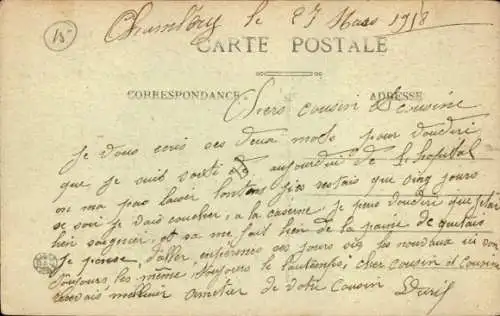 Chambéry le 27 Mars 1918
CARTE POSTALE
CORRESPONDANCE ADRESSE
Chers cousin & cousine
Je vous ecris ces deux mots pour vous dire
que je suis sorti aujourd'hui de l hopital
on ma pas laisé lontemp jies restais que cinq jours
se soir je vais coucher a la caserne je peu vous dire que jetai
bien soigner et sa me fait bien de la paine de quitais
Je pense d'aller en permes ces jours
toujours les meme toujours le cher cousin et cousine
recevais meilleur amitier de votre cousin